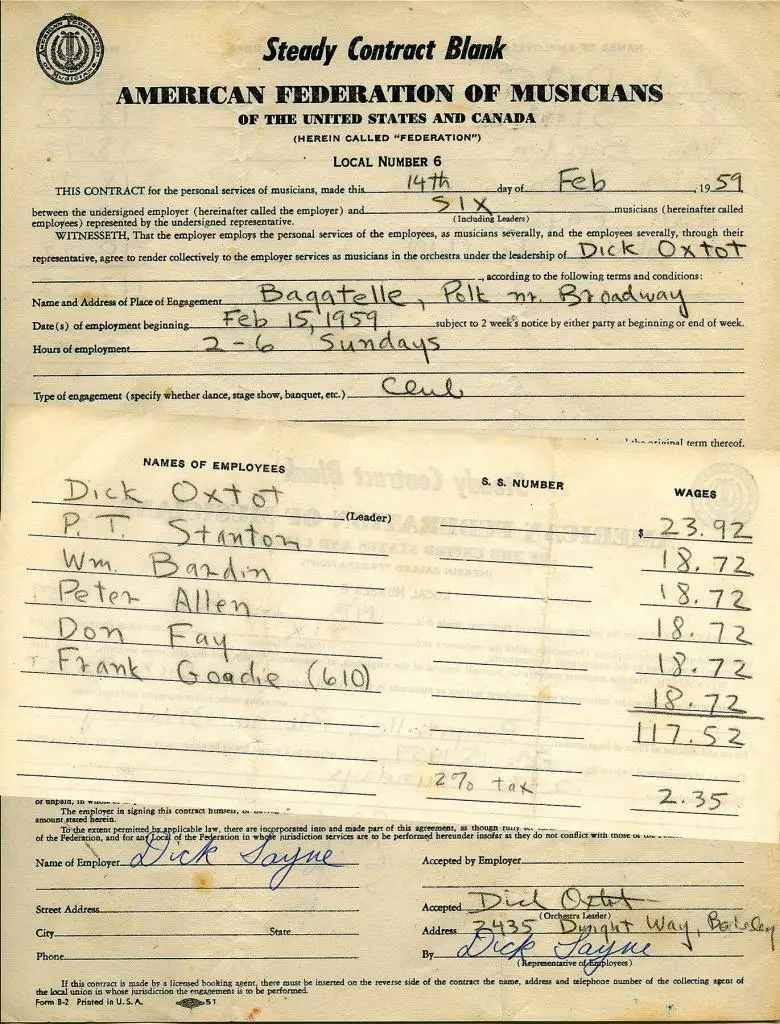 AMERICAN FEDERATION OF MUSICIANS
Steady Contract Blank
AMERICAN FEDERATION OF MUSICIANS
OF THE UNITED STATES AND CANADA
(HEREIN CALLED "FEDERATION")
LOCAL NUMBER 6
THIS CONTRACT for the personal services of musicians, made this 14th day of Feb, 1959
between the undersigned employer (hereinafter called the employer) and SIX musicians (hereinafter called
(Including Leaders)
employees) represented by the undersigned representative.
WITNESSETH, That the employer employs the personal services of the employees, as musicians severally, and the employees severally, through their
representative, agree to render collectively to the employer services as musicians in the orchestra under the leadership of Dick Oxtot
, according to the following terms and conditions:
Name and Address of Place of Engagement Bagatelle, Polk nr. Broadway
Date(s) of employment beginning Feb 15, 1959 subject to 2 week's notice by either party at beginning or end of week.
Hours of employment 2-6 Sundays
Type of engagement (specify whether dance, stage show, banquet, etc.) Club
original term thereof.
NAMES OF EMPLOYEES S. S. NUMBER WAGES
Dick Oxtot (Leader) $ 23.92
P. T. Stanton 18.72
Wm. Bardin 18.72
Peter Allen 18.72
Don Fay 18.72
Frank Goadie (610) 18.72
117.52
2% tax 2.35
or unpaid, in whole
The employer in signing this contract himself,
amount stated herein.
To the extent permitted by applicable law, there are incorporated into and made part of this agreement, as though fully
of the Federation, and for any Local of the Federation in whose jurisdiction services are to be performed hereunder insofar as they do not conflict with those of the
Name of Employer Dick Sayne Accepted by Employer
Street Address Accepted Dick Oxtot
(Orchestra Leader)
City State Address 2435 Dwight Way, Berkeley
Phone By Dick Sayne
(Representative of Employees)
If this contract is made by a licensed booking agent, there must be inserted on the reverse side of the contract the name, address and telephone number of the collecting agent of
the local union in whose jurisdiction the engagement is to be performed.
Form B-2 Printed in U. S. A. 51